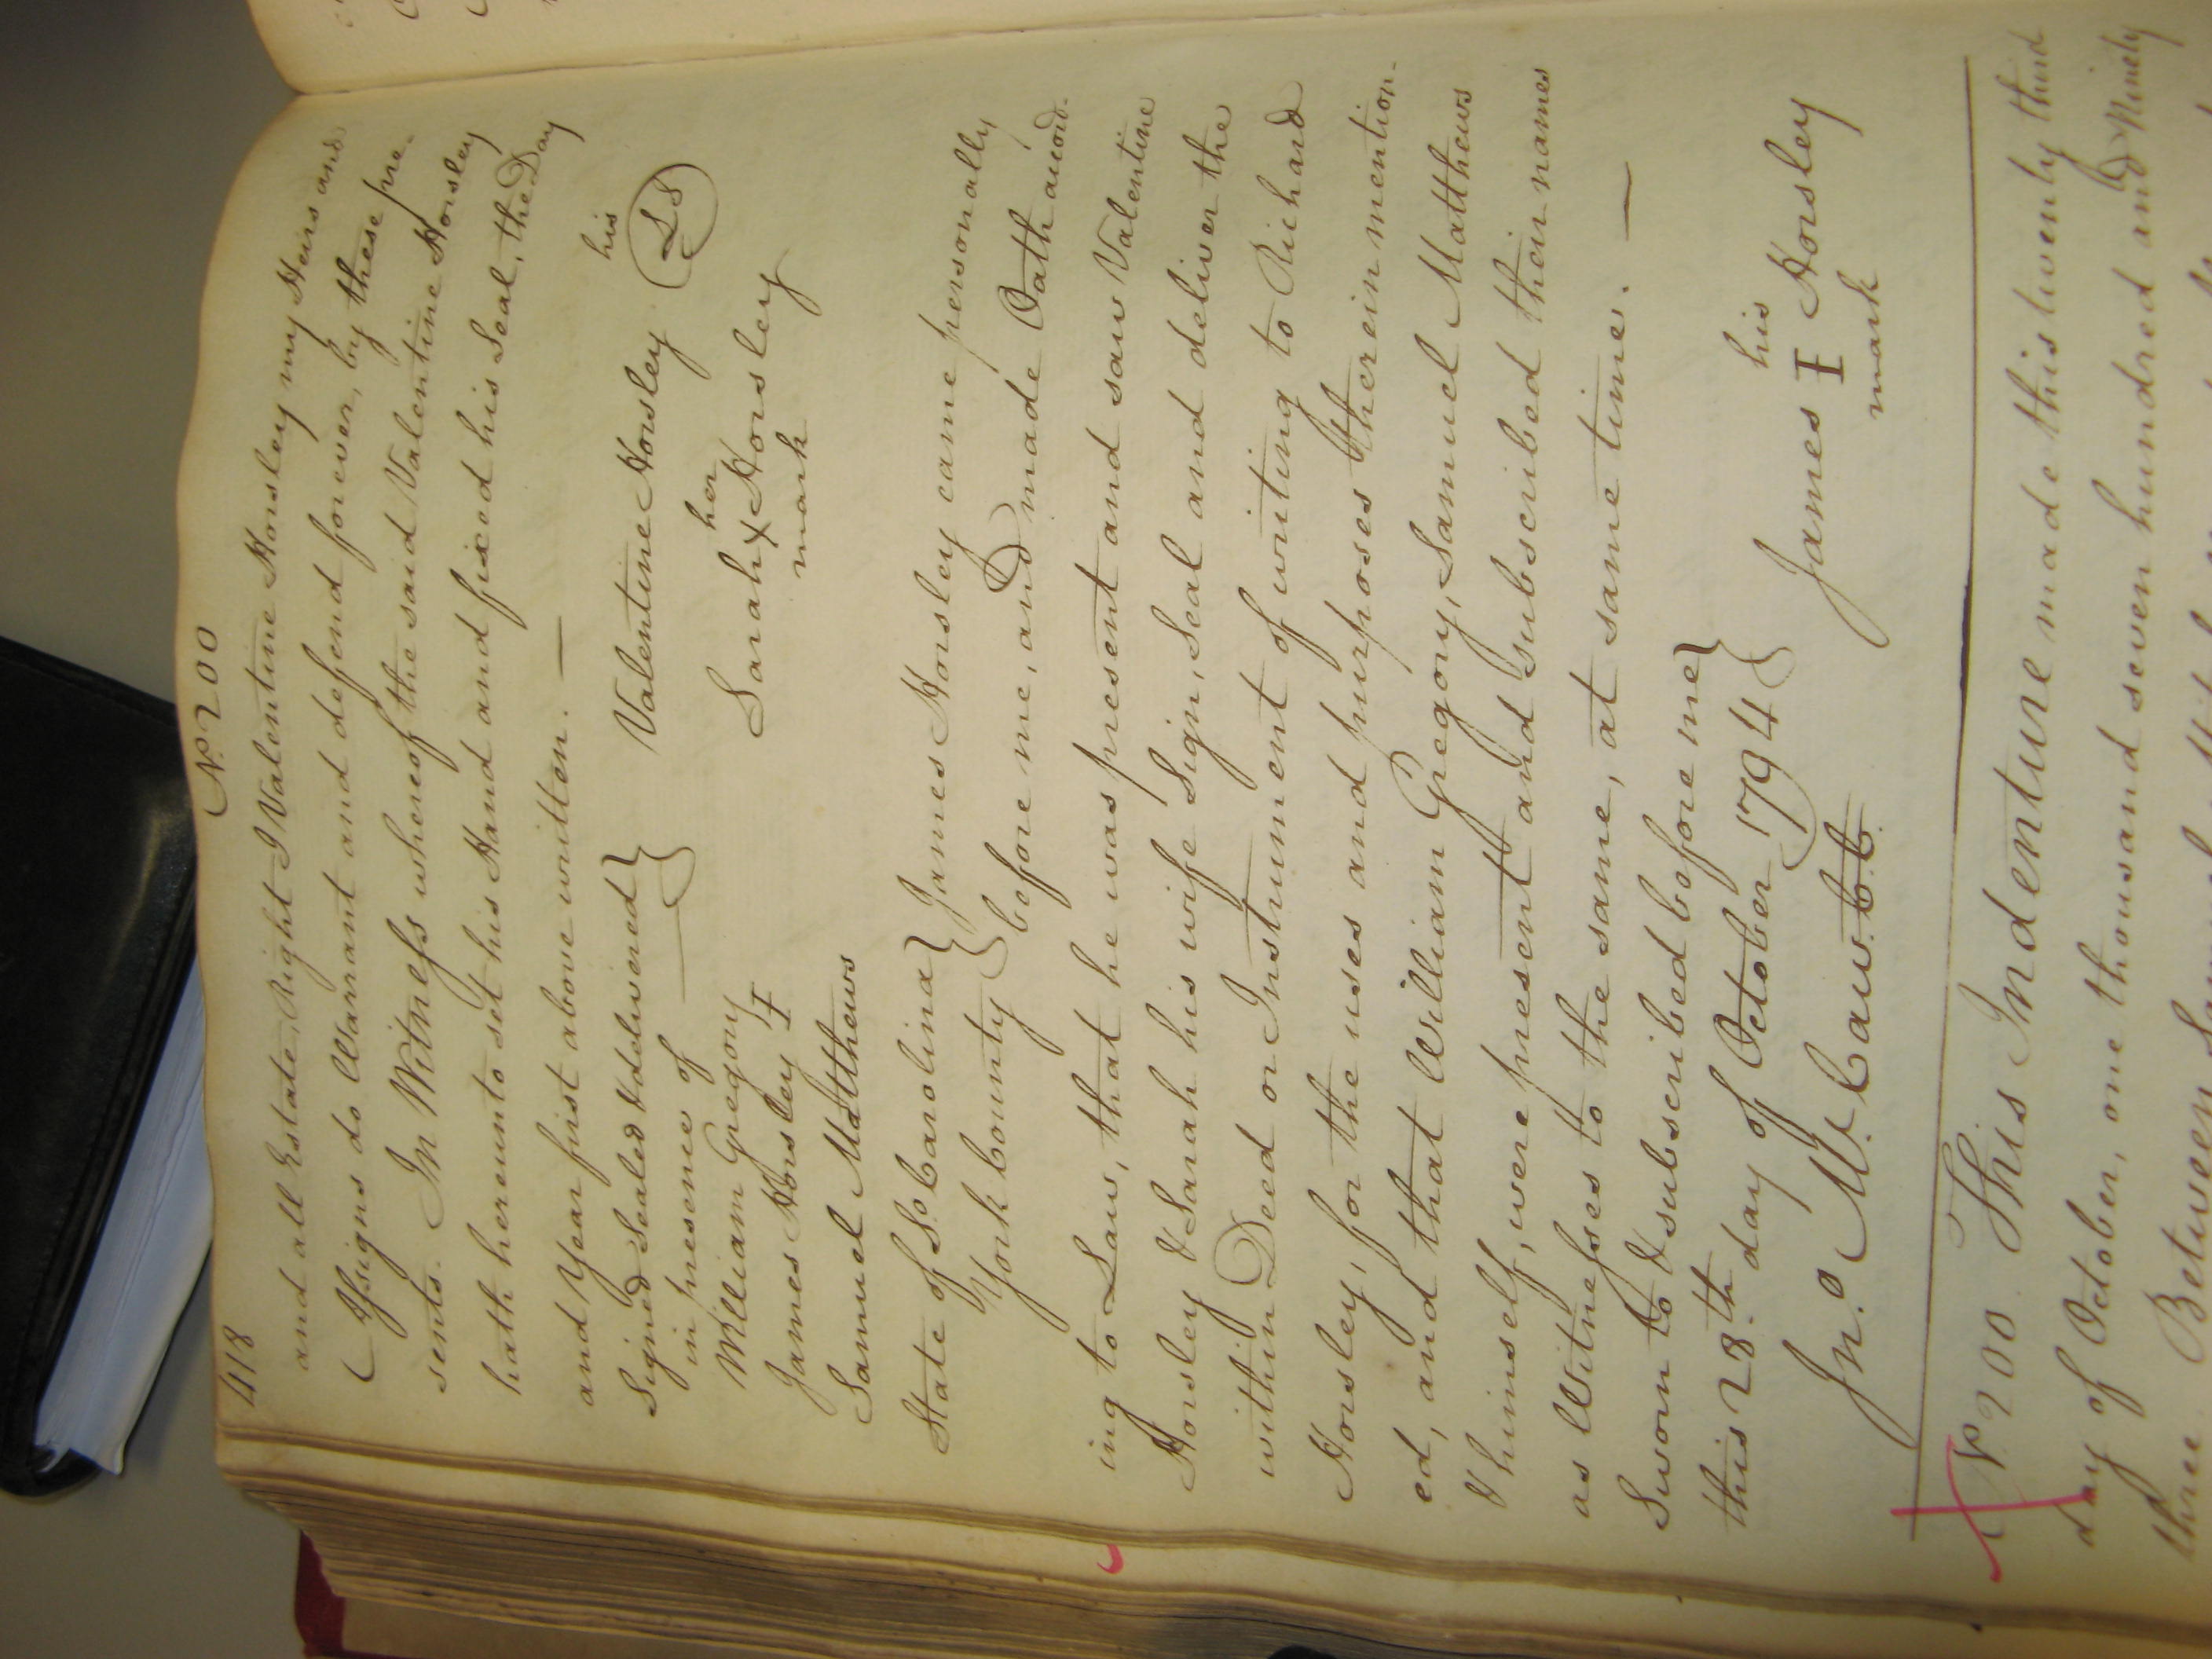 418 No. 200
and all Estate, Right I Valentine Horsley my Heirs and
Assigns do Warrant and defend forever, by these pre-
sents. In Witness whereof the said Valentine Horsley
hath hereunto set his Hand and fixed his Seal, the Day
and Year first above written. —
Signed Sealed & delivered } his
in presence of — Valentine Horsley (LS)
William Gregory her
James Horsley I Sarah X Horsley
Samuel Matthews mark
State of So. Carolina } James Horsley came personally
York County } before me, and made Oath accord-
ing to Law, that he was present and saw Valentine
Horsley & Sarah his wife Sign, Seal and deliver the
within Deed or Instrument of writing to Richard
Horsley, for the uses and purposes therein mention-
ed, and that William Gregory, Samuel Matthews
& himself, were present and subscribed their names
as Witnesses to the same, at same time. —
Sworn to & subscribed before me } his
this 28.th day of October 1794 } James I Horsley
Jno. McCaw. C.C. mark
No. 200. This Indenture made this twenty third
day of October, one thousand seven hundred and Ninety
three Between